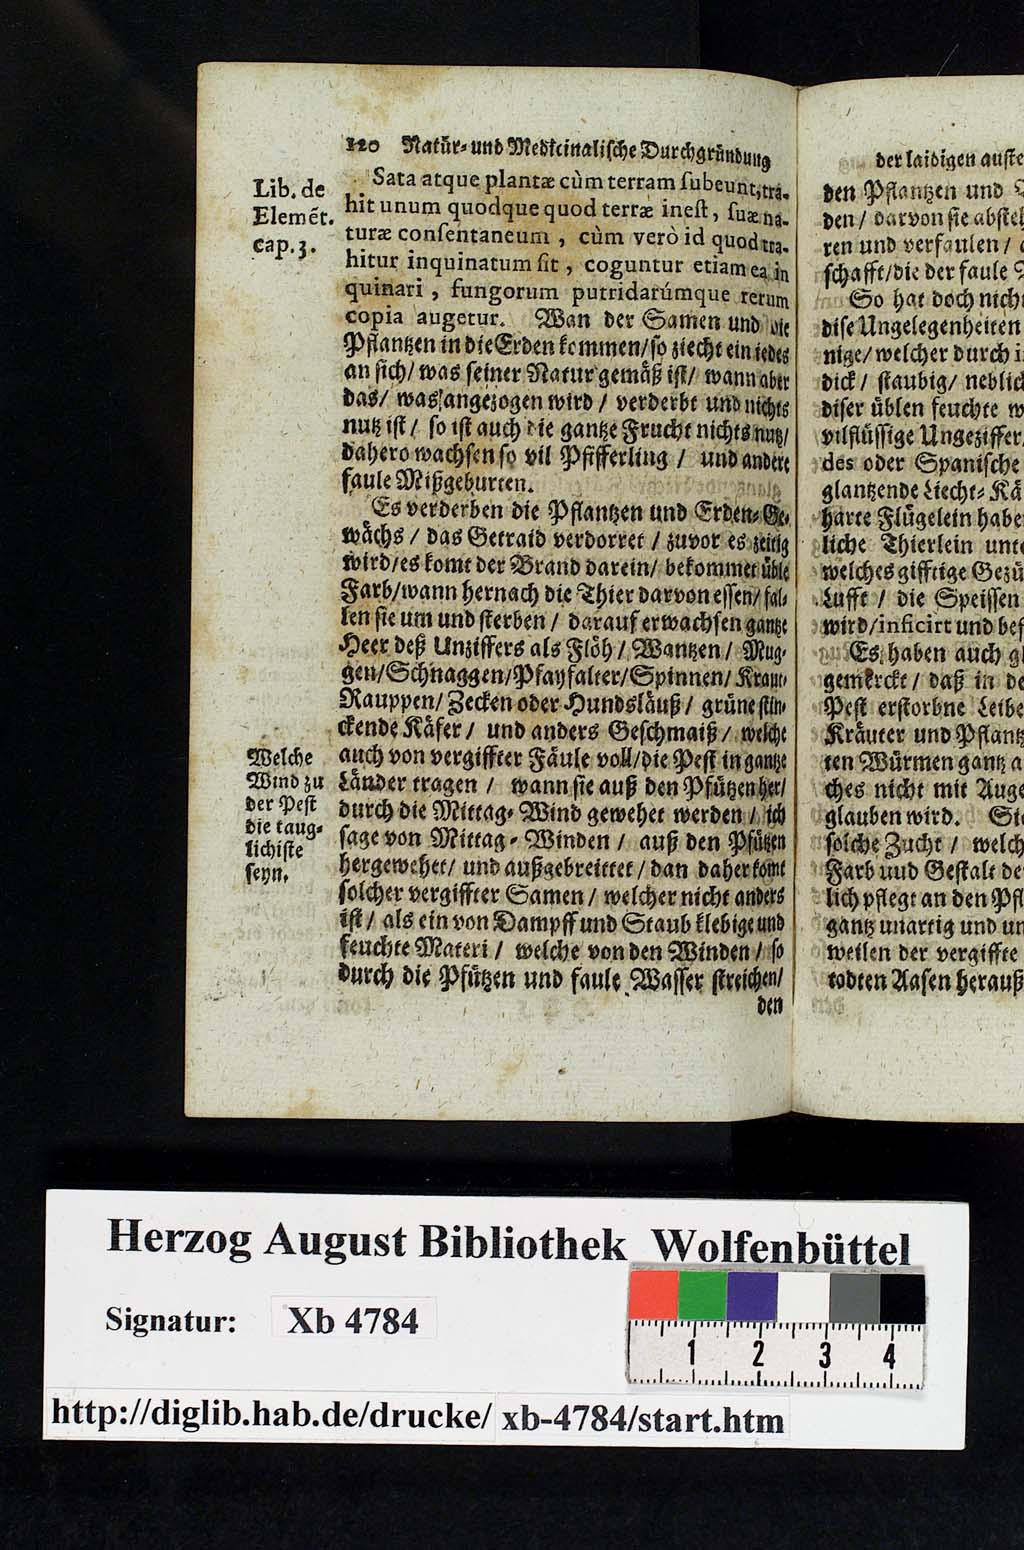 120 Natůr- und Medicinalische Durchgründung
Lib. de
Elemẽt.
cap. 3.
Sata atque plantæ cùm terram ſubeunt, tra-
hit unum quodque quod terræ ineſt, ſuæ na-
turæ conſentaneum, cùm verò id quod tra-
hitur inquinatum ſit, coguntur etiam ea in
quinari, fungorum putridarúmque rerum
copia augetur. Wan der Samen und die
Pflantzen in die Erden kommen/ so ziecht ein iedes
an sich/ was seiner Natur gemäß ist/ wann aber
das/ was angezogen wird/ verderbt und nichts
nutz ist/ so ist auch die gantze Frucht nichts nutz/
dahero wachsen so vil Pfifferling/ und andere
faule Mißgeburten.
Es verderben die Pflantzen und Erden-Ge-
wächs/ das Getraid verdorret/ zuvor es zeitig
wird/ es komt der Brand darein/ bekommet üble
Farb/ wann hernach die Thier darvon essen/ fal-
len sie um und sterben/ darauf erwachsen gantze
Heer deß Unziffers als Flöh/ Wantzen/ Mug-
gen/ Schnaggen/ Pfayfalter/ Spinnen/ Kraut-
Rauppen/ Zecken oder Hundsläuß/ grüne stin-
ckende Käfer/ und anders Geschmaiß/ welche
auch von vergiffter Fäule voll/ die Pest in gantze
Länder tragen/ wann sie auß den Pfützen her/
durch die Mittag-Wind gewehet werden/ ich
sage von Mittag-Winden/ auß den Pfützen
hergewehet/ und außgebreittet/ dan daher komt
solcher vergiffter Samen/ welcher nicht anders
ist/ als ein von Dampff und Staub klebige und
feuchte Materi/ welche von den Winden/ so
durch die Pfützen und faule Wasser streichen/
den
Welche
Wind zu
der Pest
die taug-
lichiste
seyn.
der laidigen auste
den Pflantzen und
den/ darvon sie abste
ren und verfaulen/
schafft/ die der faule
So hat doch nich
dise Ungelegenheiten
nige/ welcher durch i
dick/ staubig/ neblich
diser üblen feuchte w
vilflüssige Ungeziffer/
des oder Spanische
glantzende Liecht-Kä
harte Flügelein habe
liche Thierlein unte
welches gifftige Gezü
Lufft/ die Speissen
wird/ inficirt und bef
Es haben auch gl
gemerckt/ daß in de
Pest erstorbne Leibe
Kräuter und Pflantz
ten Würmen gantz a
ches nicht mit Auge
glauben wird. Sie
solche Zucht/ welch
Farb uud Gestalt de
lich pflegt an den Pfl
gantz unartig und un
weilen der vergiffte
todten Aasen herauß
Herzog August Bibliothek Wolfenbüttel
Signatur: Xb 4784
1 2 3 4
http://diglib.hab.de/drucke/ xb-4784/start.htm